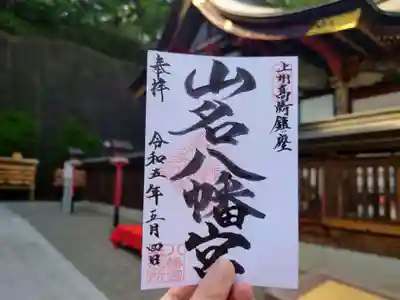 上州高崎鎮座
奉拝
山名八幡宮
令和五年五月四日